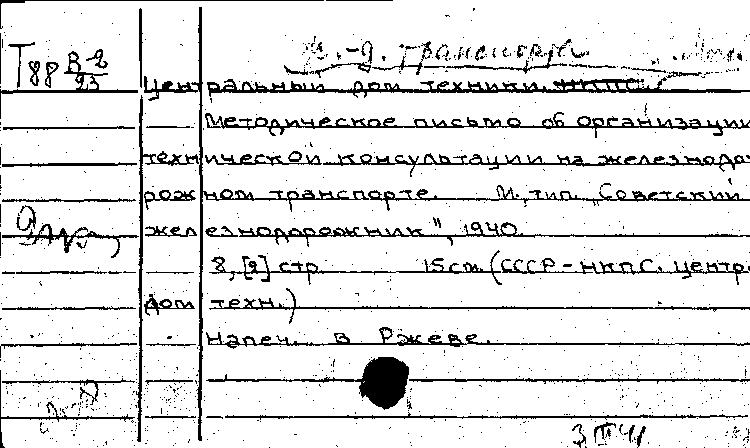 Т88 В-2
23
ж.-д. транспорта
Центральный дом техники НКПС
Методическое письмо об организации
технической консультации на железнодо-
рожном транспорте. М., тип. „Советский
железнодорожник", 1940.
8, [2] стр 15 см. (СССР-НКПС. Центр.
дом техн.)
Напеч. в Ржеве.
3 IV 41